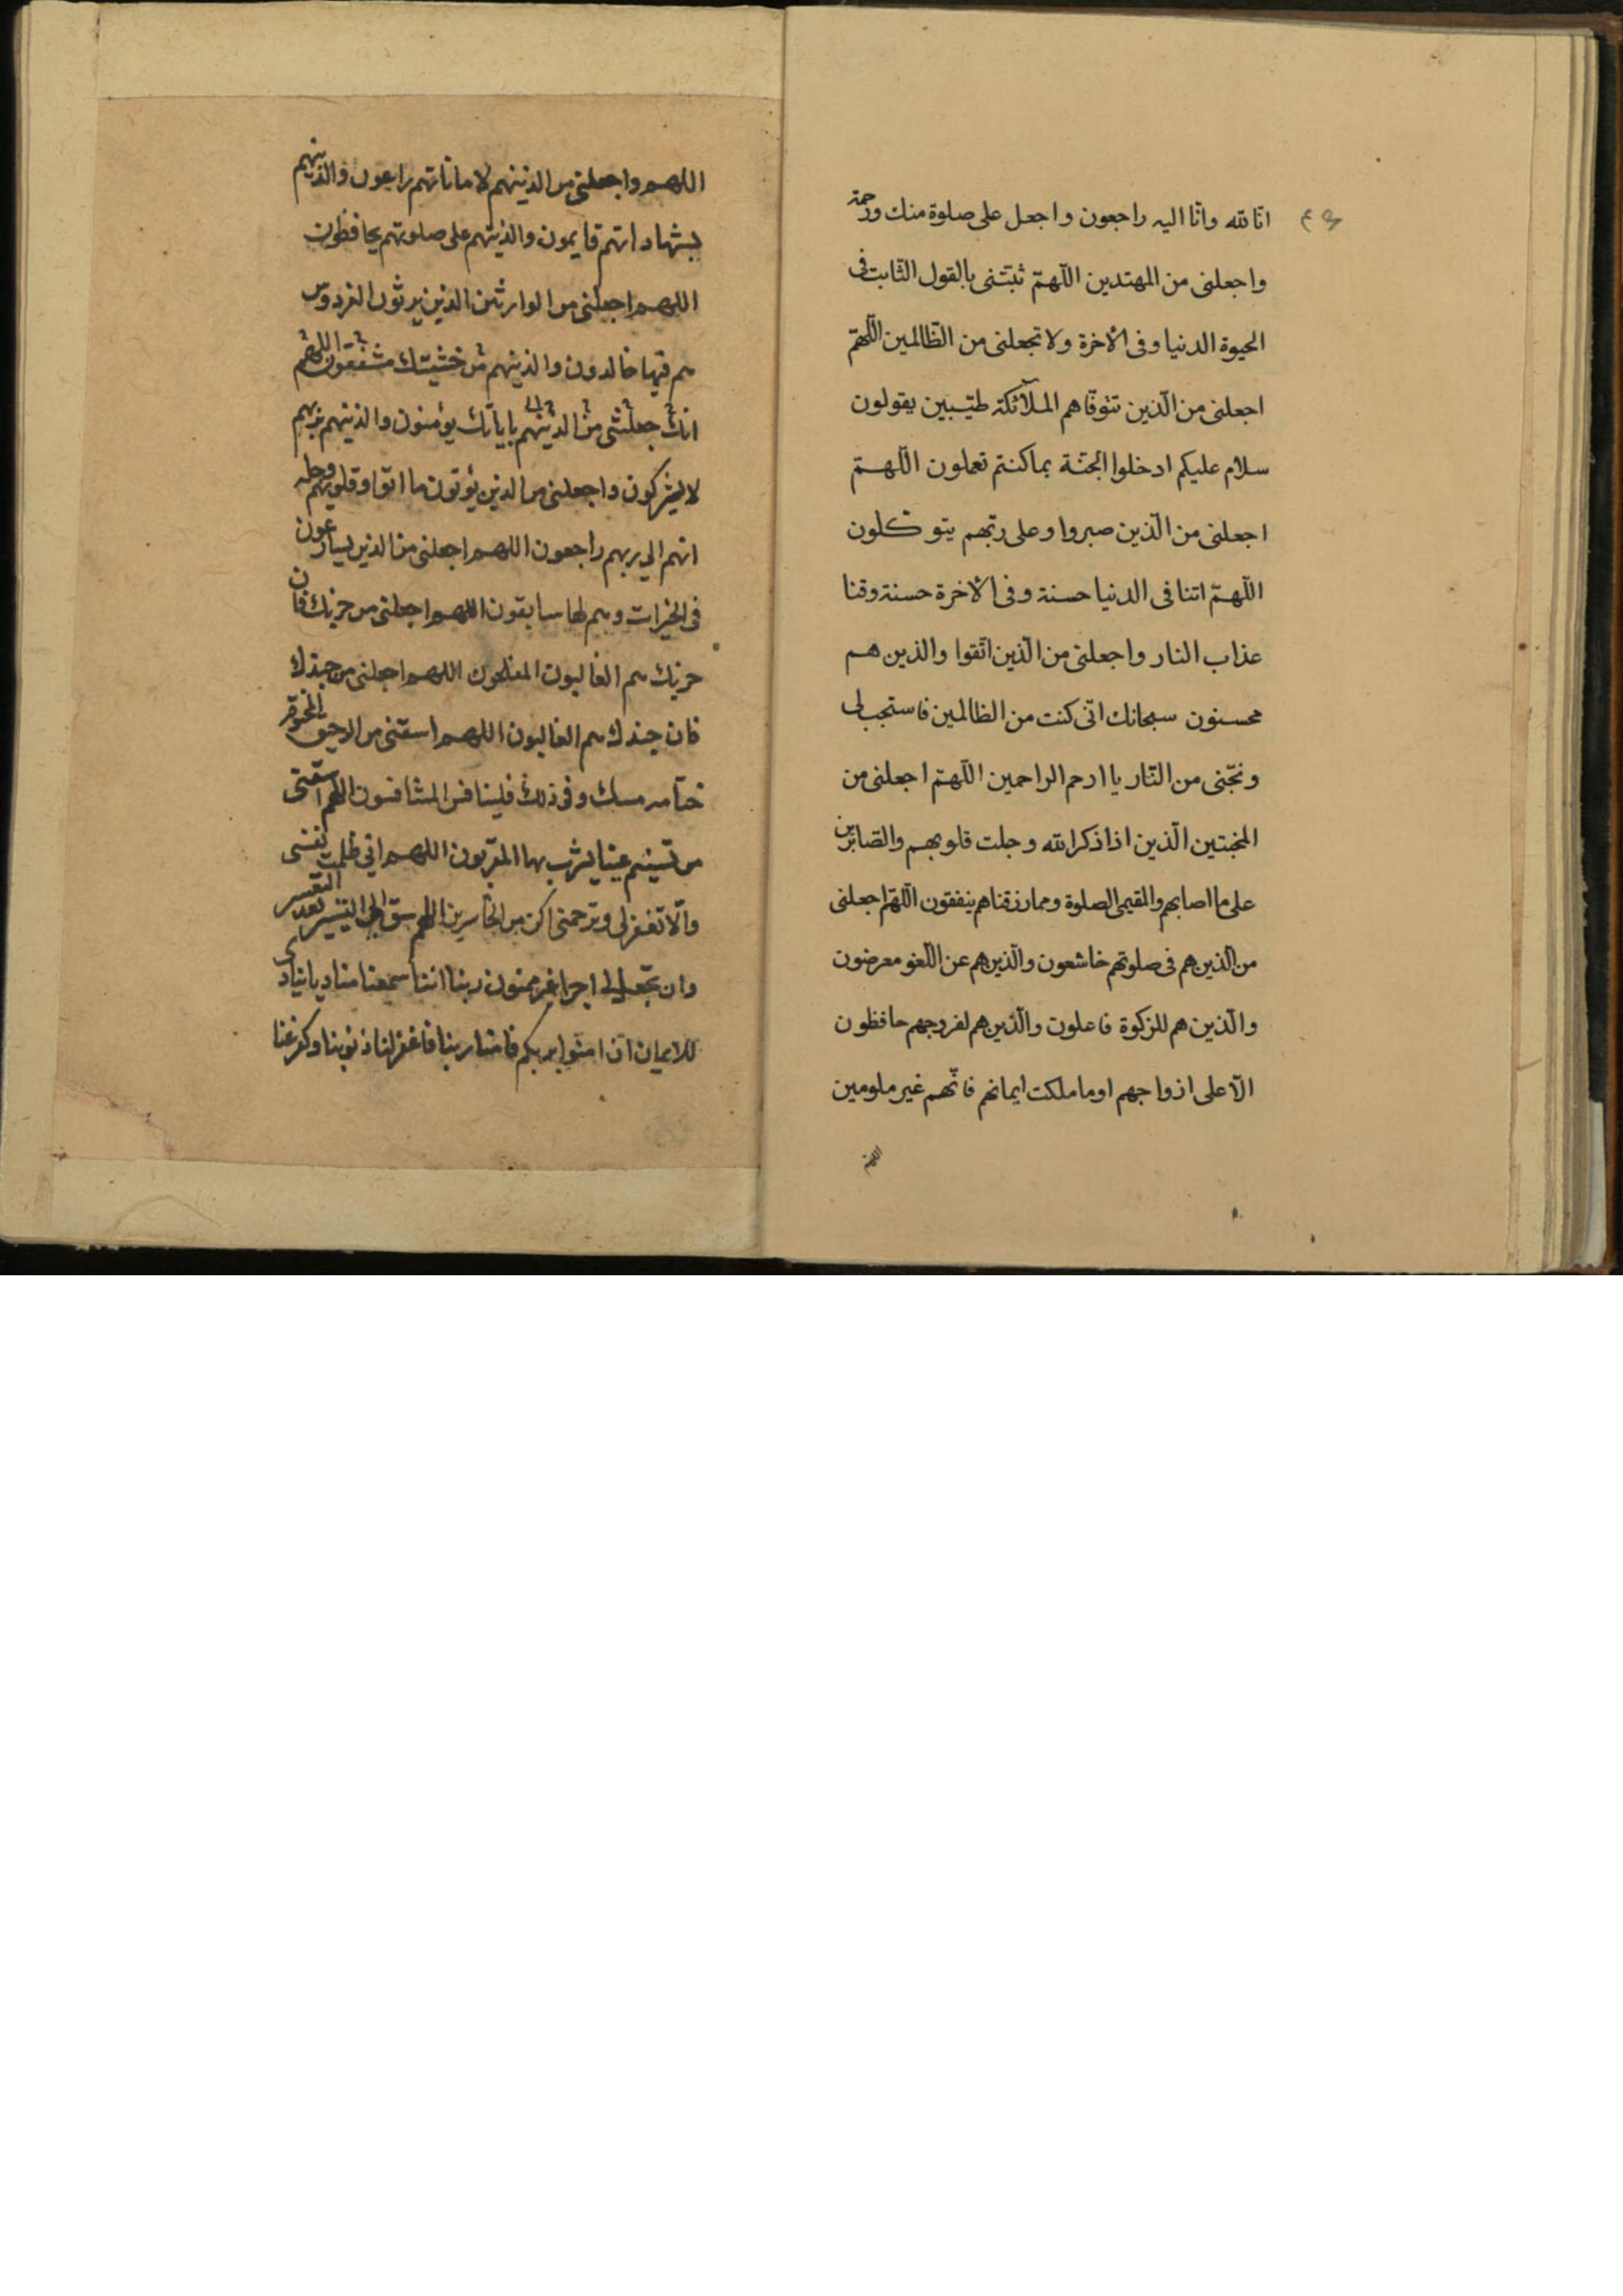 انّا لله وانّا اليه راجعون واجعل على صلوة منك ورحمة
واجعلنى من المهتدين اللّهمّ ثبّتنى بالقول الثّابت فى
الحيوة الدنيا وفى الاخرة ولا تجعلنى من الظّالمين اللّهمّ
اجعلنى من الّذين تتوفّاهم الملآئكة طيّبين يقولون
سلام عليكم ادخلوا الجنّة بما كنتم تعملون اللّهمّ
اجعلنى من الّذين صبروا وعلى ربّهم يتوكلون
اللّهمّ اتنا فى الدنيا حسنة وفى الاخرة حسنة وقنا
عذاب النار واجعلنى من الّذين اتّقوا والذين هم
محسنون سبحانك انّى كنت من الظالمين فاستجب لى
ونجّنى من النّار يا ارحم الراحمين اللّهمّ اجعلنى من
المخبتين الّذين اذا ذكر الله وجلت قلوبهم والصّابرين
على ما اصابهم والمقيمى الصلوة ومما رزقناهم ينفقون اللّهمّ اجعلنى
من الّذين هم فى صلوتهم خاشعون والّذين هم عن اللّغو معرضون
والّذين هم للزكوة فاعلون والّذين هم لفروجهم حافظون
الّا على ازواجهم او ما ملكت ايمانهم فانّهم غير ملومين
اللهم
اللهم واجعلنى من الذينهم لاماناتهم راعون والذينهم
بشهاداتهم قايمون والذينهم على صلوتهم يحافظون
اللهم اجعلنى من الوارثين الذين يرثون الفردوس
هم فيها خالدون والذينهم من خشيتك مشفقون اللهم
انك جعلتنى من الذينهم باياتك يؤمنون والذينهم بربهم
لا يشركون واجعلنى من الذين يؤتون ما اتوا وقلوبهم وجله
انهم الى ربهم راجعون اللهم اجعلنى من الذين يسارعون
فى الخيرات وهم لها سابقون اللهم اجعلنى من حزبك فان
حزبك هم الغالبون المفلحون اللهم اجعلنى من جندك
فان جندك هم الغالبون اللهم اسقنى من الرحيق المختوم
ختامه مسك وفى ذلك فليتنافس المتنافسون اللهم اسقنى
من تسنيم عينا يشرب بها المقربون اللهم انى ظلمت نفسى
والّا تغفرلى وترحمنى اكن من الخاسرين اللهم الى التيسير بعد التعسير
وان تجعل لى اجرا غير ممنون ربنا اننا سمعنا مناديا ينادى
للايمان ان امنوا بربكم فامنا ربنا فاغفرلنا ذنوبنا وكفر عنا